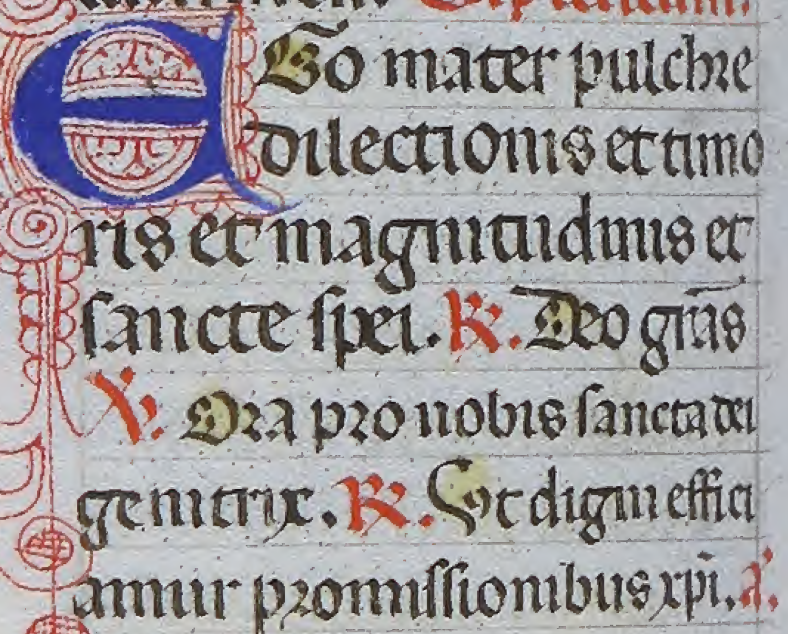 EGo mater pulchre
dilectionis et timo
ris et magnitudinis et
sancte spei. ℟. Deo gr̄as
℣. Ora pro nobis sancta dei
genitrix. ℟. Vt digni effici
amur promissionibus xp̄i. a.